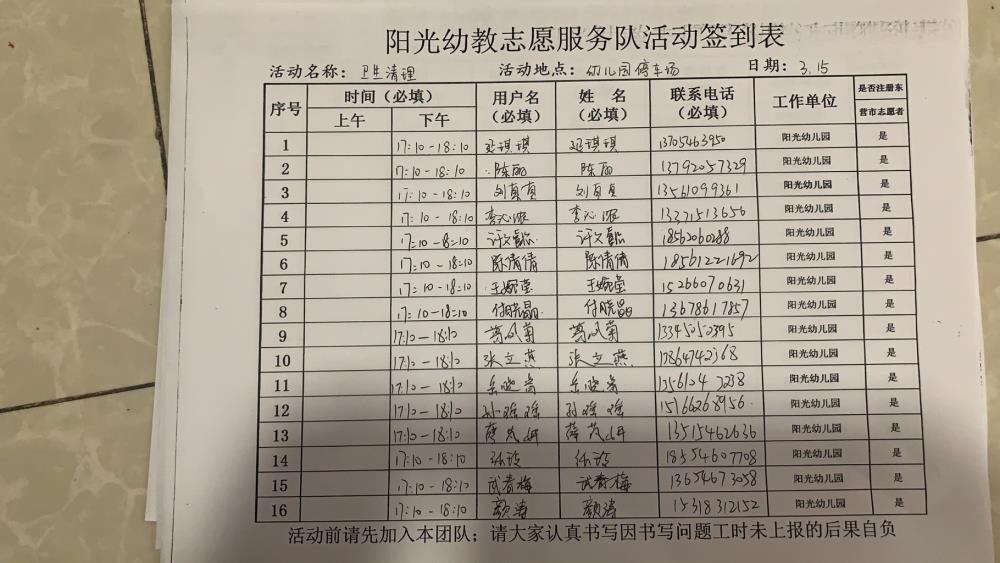 阳光幼教志愿服务队活动签到表
活动名称：卫生清理 活动地点：幼儿园停车场 日期：3.15
序号 时间（必填） 用户名（必填） 姓名（必填） 联系电话（必填） 工作单位 是否注册东营市志愿者
上午 下午
1 17:10-18:10 琪琪 琪琪 13705463950 阳光幼儿园 是
2 17:10-18:10 陈丽 陈丽 13792057329 阳光幼儿园 是
3 17:10-18:10 刘真真 刘真真 13561099361 阳光幼儿园 是
4 17:10-18:10 李沁浓 李沁浓 13371513656 阳光幼儿园 是
5 17:10-18:10 许文 许文 18562060288 阳光幼儿园 是
6 17:10-18:10 陈倩倩 陈倩倩 18561221692 阳光幼儿园 是
7 17:10-18:10 王婉莹 王婉莹 15266070631 阳光幼儿园 是
8 17:10-18:10 付晓晶 付晓晶 13678617857 阳光幼儿园 是
9 17:10-18:10 葛凤菊 葛凤菊 13345050395 阳光幼儿园 是
10 17:10-18:10 张立燕 张立燕 17864742368 阳光幼儿园 是
11 17:10-18:10 岳晓 岳晓 阳光幼儿园 是
12 17:10-18:10 孙瑶瑶 孙瑶瑶 15166268956 阳光幼儿园 是
13 17:10-18:10 薛茂妍 薛茂妍 13515462636 阳光幼儿园 是
14 17:10-18:10 18554607708 阳光幼儿园 是
15 17:10-18:10 武春梅 武春梅 13654673058 阳光幼儿园 是
16 17:10-18:10 颜涛 颜涛 15318312152 阳光幼儿园 是
活动前请先加入本团队；请大家认真书写因书写问题工时未上报的后果自负